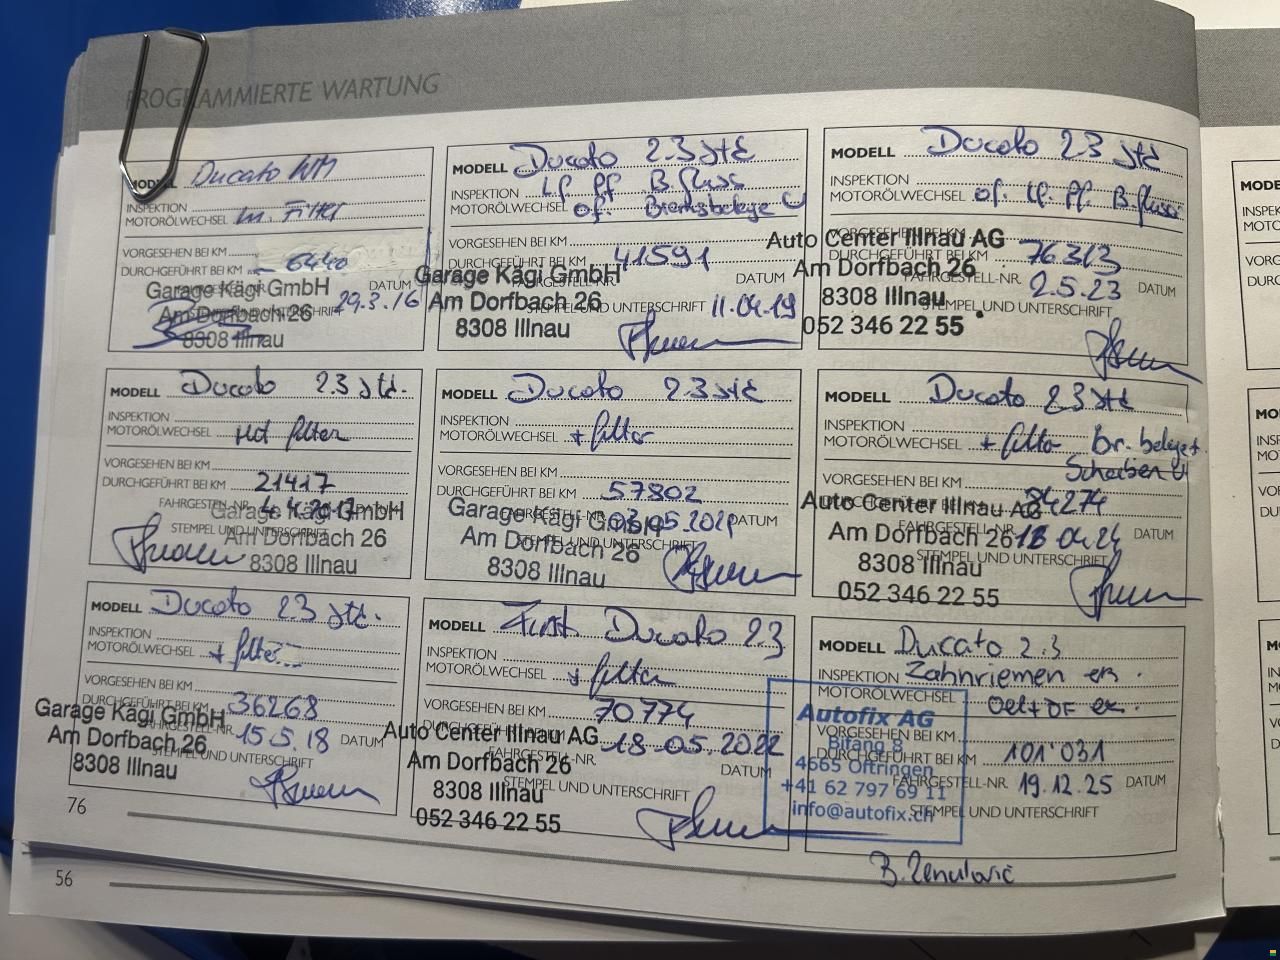 PROGRAMMIERTE WARTUNG
MODELL Ducato
INSPEKTION
MOTORÖLWECHSEL m. Filter
VORGESEHEN BEI KM
DURCHGEFÜHRT BEI KM 6440
DATUM
29.3.16
Garage Kägi GmbH
Am Dorfbach 26
8308 Illnau
MODELL Ducato 2.3 Jtd.
INSPEKTION
MOTORÖLWECHSEL filter
VORGESEHEN BEI KM
DURCHGEFÜHRT BEI KM 21417
FAHRGESTELL-NR. 4.4.2017 DATUM
STEMPEL UND UNTERSCHRIFT
Garage Kägi GmbH
Am Dorfbach 26
8308 Illnau
MODELL Ducato 2.3 Jtd.
INSPEKTION
MOTORÖLWECHSEL + filter
VORGESEHEN BEI KM
DURCHGEFÜHRT BEI KM 36268
15.5.18 DATUM
Garage Kägi GmbH
Am Dorfbach 26
8308 Illnau
76
MODELL Ducato 2.3 Jtd
INSPEKTION Lf. Pf. B.fluss
MOTORÖLWECHSEL of. Bremsbeläge
VORGESEHEN BEI KM
DURCHGEFÜHRT BEI KM 41591
FAHRGESTELL-NR. DATUM
STEMPEL UND UNTERSCHRIFT 11.04.19
Garage Kägi GmbH
Am Dorfbach 26
8308 Illnau
MODELL Ducato 2.3 Jtd
INSPEKTION
MOTORÖLWECHSEL + filter
VORGESEHEN BEI KM
DURCHGEFÜHRT BEI KM 57802
03.05.2021 DATUM
STEMPEL UND UNTERSCHRIFT
Garage Kägi GmbH
Am Dorfbach 26
8308 Illnau
MODELL Fiat Ducato 23
INSPEKTION
MOTORÖLWECHSEL + filter
VORGESEHEN BEI KM 70774
DURCHGEFÜHRT BEI KM
FAHRGESTELL-NR. 18.05.2022
DATUM
STEMPEL UND UNTERSCHRIFT
Auto Center Illnau AG
Am Dorfbach 26
8308 Illnau
052 346 22 55
MODELL Ducato 23 Jtd
INSPEKTION
MOTORÖLWECHSEL of. Lf. Pf. B.fluss
VORGESEHEN BEI KM
DURCHGEFÜHRT BEI KM 76313
FAHRGESTELL-NR. 2.5.23 DATUM
STEMPEL UND UNTERSCHRIFT
Auto Center Illnau AG
Am Dorfbach 26
8308 Illnau
052 346 22 55
MODELL Ducato 23 Jtd
INSPEKTION
MOTORÖLWECHSEL + filter Br. beläge +
Scheiben
VORGESEHEN BEI KM
DURCHGEFÜHRT BEI KM 84274
FAHRGESTELL-NR. 04.24 DATUM
STEMPEL UND UNTERSCHRIFT
Auto Center Illnau AG
Am Dorfbach 26
8308 Illnau
052 346 22 55
MODELL Ducato 2.3
INSPEKTION Zahnriemen er.
MOTORÖLWECHSEL Oel+OF er.
VORGESEHEN BEI KM
DURCHGEFÜHRT BEI KM 101'031
FAHRGESTELL-NR. 19.12.25 DATUM
STEMPEL UND UNTERSCHRIFT
Autofix AG
Bifang 8
4665 Oftringen
+41 62 797 69 11
info@autofix.ch
56